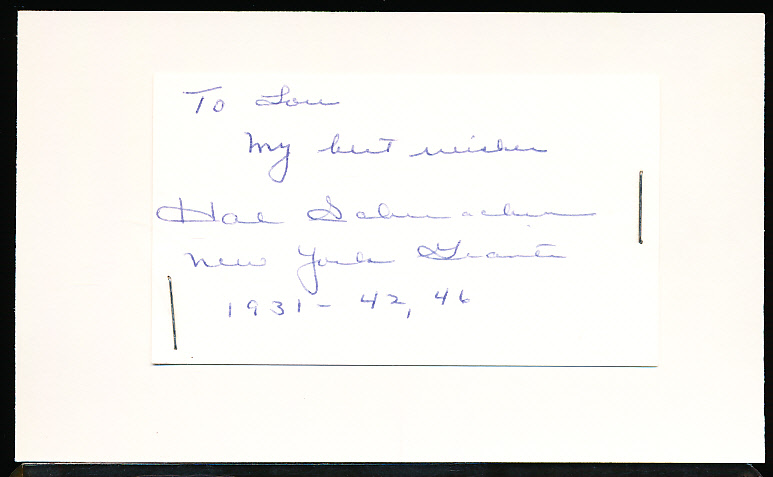 To Lou
My best wishes
Hal Schumacher
New York Giants
1931-42, 46